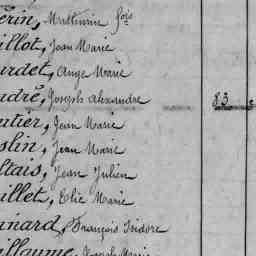 érin, Mathurin fois
illot, Jean Marie
urdet, Ange Marie
udré, Joseph Alexandre 83
utier, Jean Marie
slin, Jean Marie
ltais, Jean Julien
illet, Elie Marie
nard, François Isidore
illaume, Joseph Marie